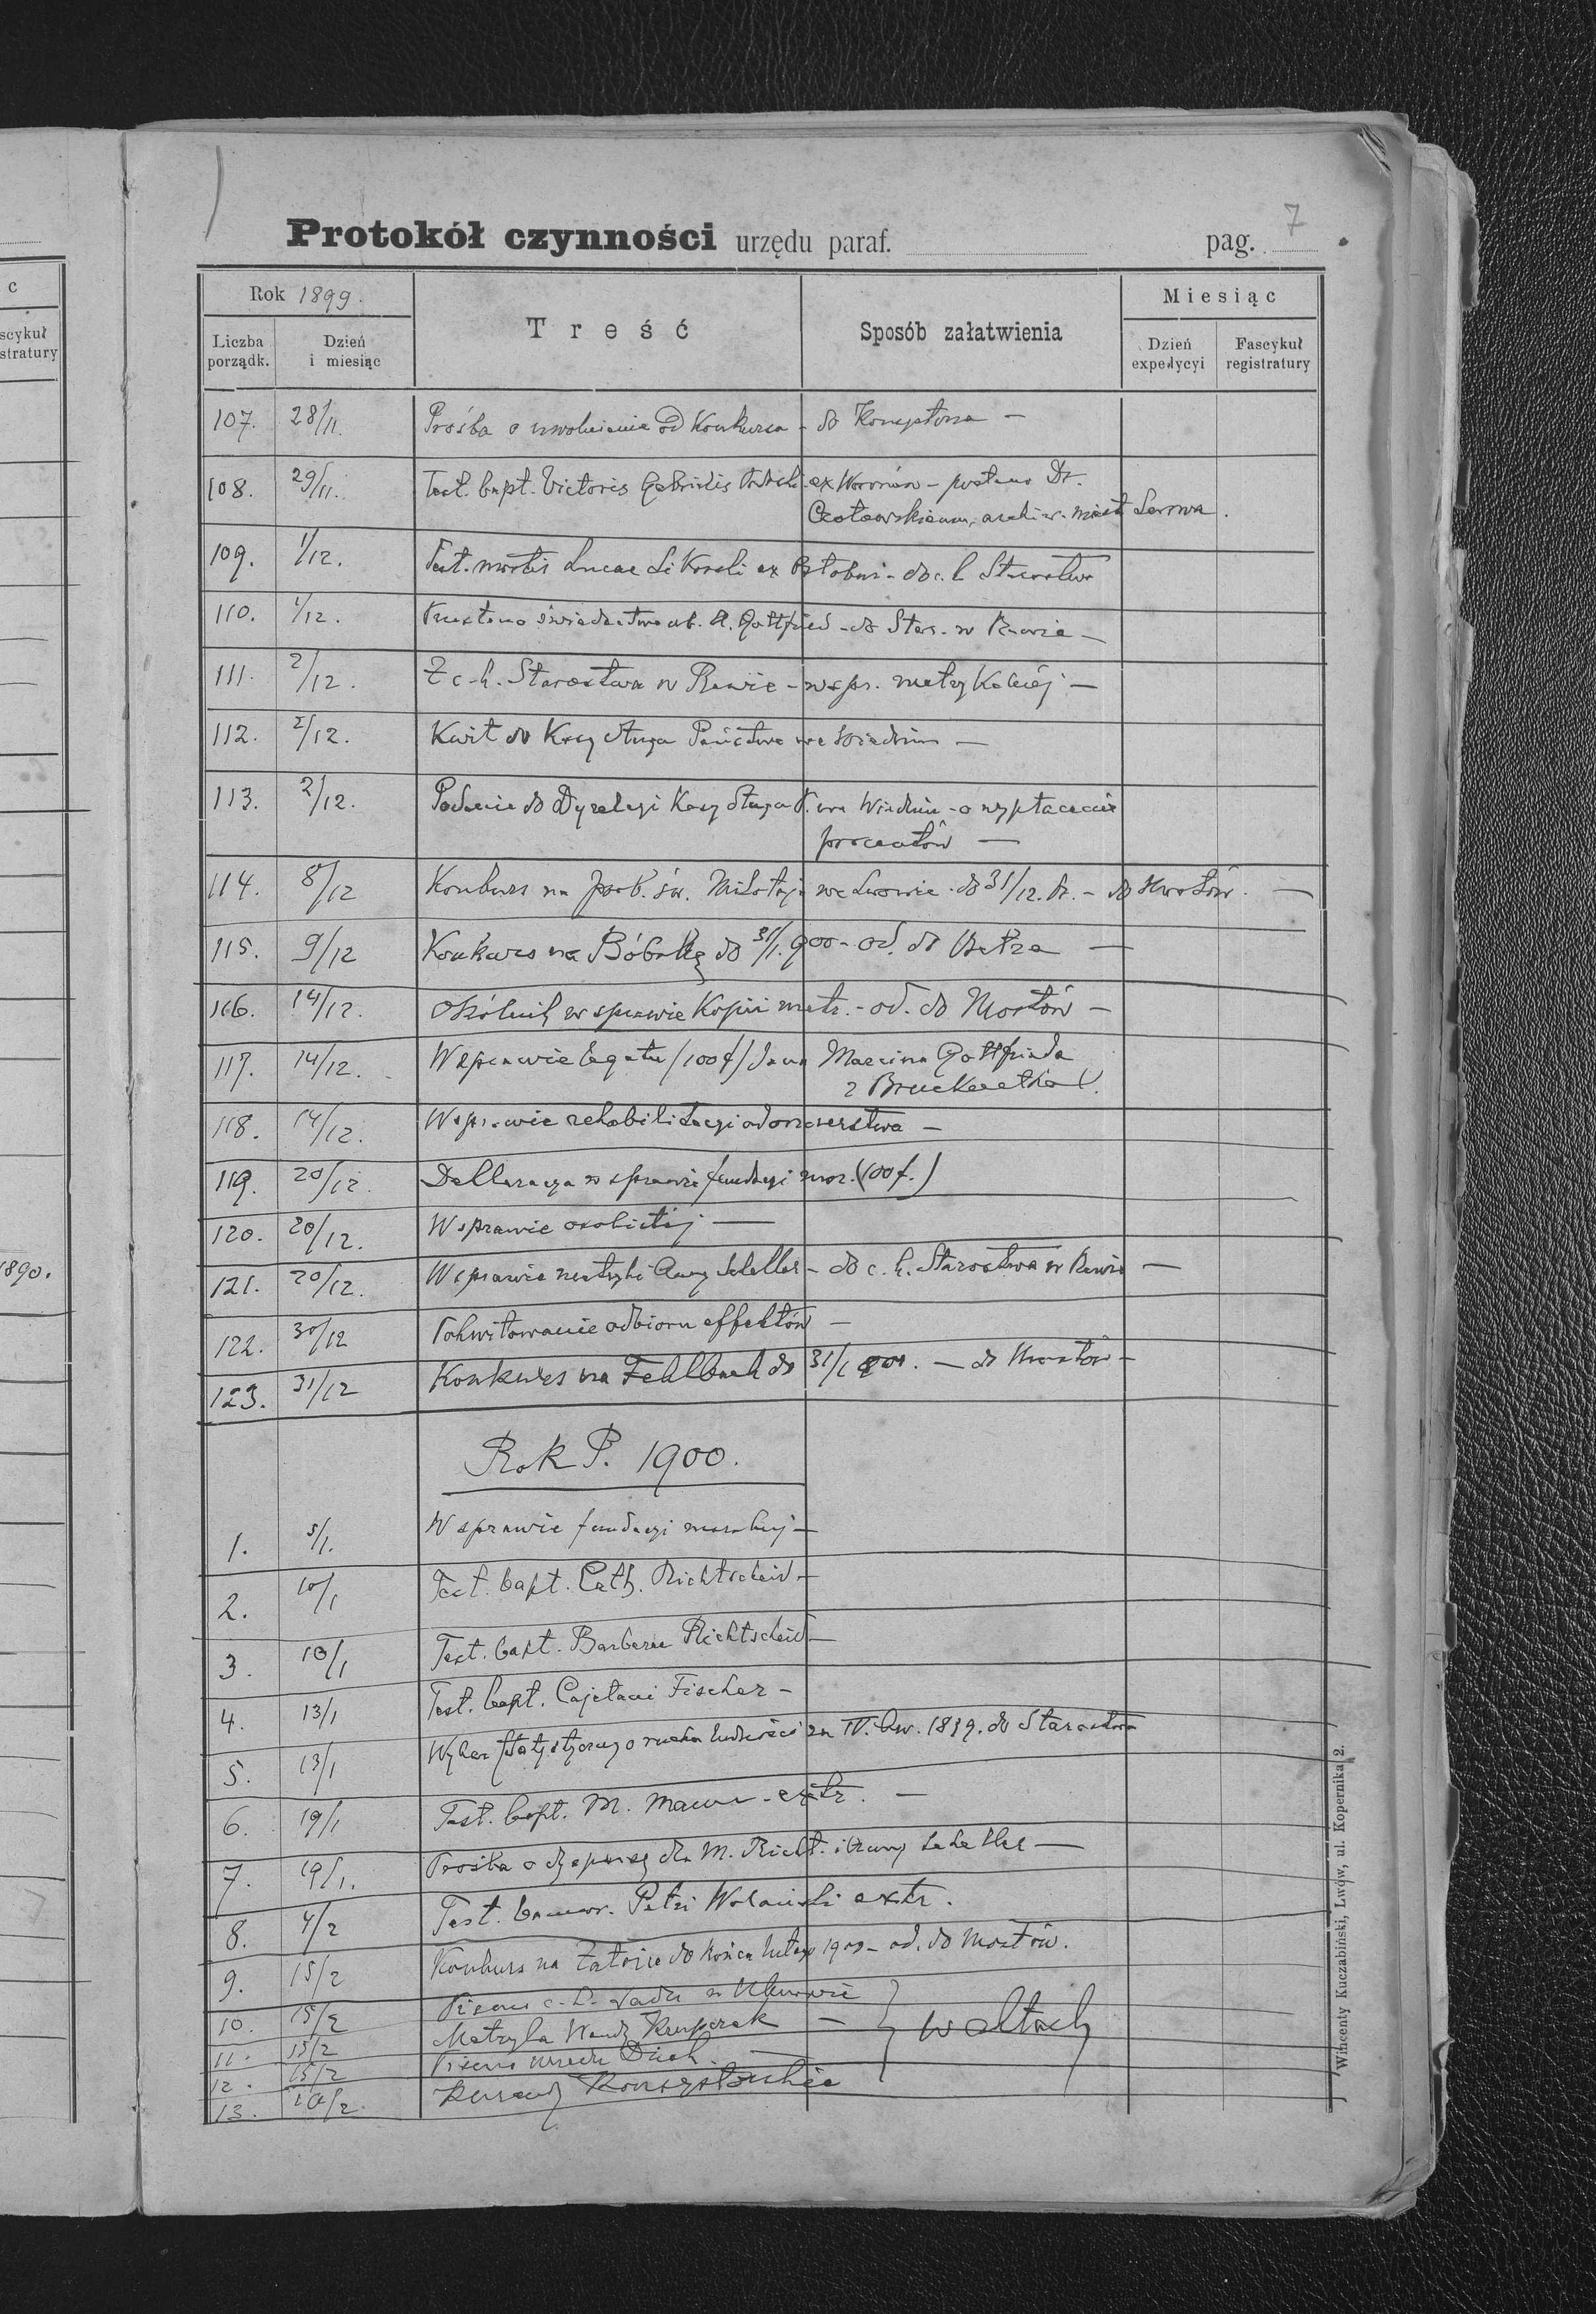 c
scykuł
stratury
1890.
7
Protokół czynności urzędu paraf. pag. 7
Rok 1899.
Treść
Sposób załatwienia
Miesiąc
Liczba porządk.
Dzień i miesiąc
Dzień expedycyi
Fascykuł registratury
107. 28/11. Prośba o uwolnienie od Konkursu - do Konsystorza —
108. 29/11. Test. bapt. Victoris Gabrielis ex - posłano Dr.
Czołowskiemu, archiw. miast. Lwowa.
109. 1/12. Test. mortis Lucae Sikorski ex - do c. k. Starostwa
110. 1/12. Przesłano świadectwo ub. A. Gottfried - do Star. w Rawie —
111. 2/12. Z c. k. Starostwa w Rawie - w spr. metrykalnej —
112. 2/12. Kwit do Kasy długu Państwa we Wiedniu —
113. 2/12. Podanie do Dyrekcyi Kasy długu P. we Wiedniu - o wypłacenie
procentów —
114. 8/12 Konkurs na prob. św. Mikołaja we Lwowie - do 31/12. br. - do —
115. 9/12 Konkurs na Bóbrkę do 31/1. 900 - od. do Bełza —
116. 14/12. Okólnik w sprawie Kopii metr. - od. do Mostów —
117. 14/12. W sprawie legatu /100 f/ Jana Marcina Gottfrieda
z Bruckenthal.
118. 14/12. W sprawie rehabilitacyi —
119. 20/12. Deklaracya w sprawie fundacyi mor. (100 f.)
120. 20/12. W sprawie osobistej —
121. 20/12. W sprawie metryki Anny Scheller - do c. k. Starostwa w Rawie —
122. 30/12 Pokwitowanie odbioru effektów —
123. 31/12 Konkurs na Fehlbach do 31/1 — do Mostów —
Rok P. 1900.
1. 5/1. W sprawie fundacyi —
2. 10/1 Test. bapt. Cath. Richtscheid —
3. 10/1 Test. bapt. Barbarae Richtscheid —
4. 13/1 Test. bapt. Cajetani Fischer —
5. 13/1 Wykaz statystyczny o ruchu ludności za IV. kw. 1899. do Starostwa
6. 19/1 Test. bapt. M. - extr. —
7. 19/1. Prośba o dyspensę dla M. Richt. i Anny Scheller —
8. 4/2 Test. Petri Wolański extr.
9. 15/2 Konkurs na Zatorze do końca lutego 1900 - od. do Mostów.
10. 15/2 Pismo c. k. Sądu w Uhnowie
11. 15/2 Metryka Wandy — } w aktach
12. 15/2 Pismo urzędu —
13. 20/2. Kurendy Konsystorskie
Wincenty Kuczabiński, Lwów, ul. Kopernika 2.